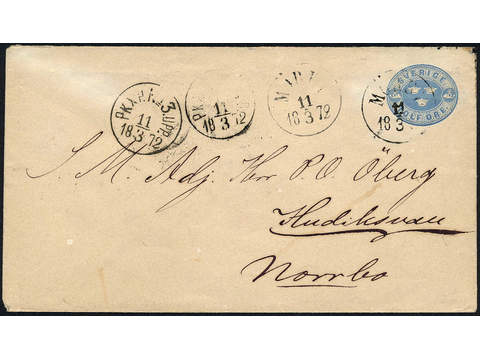 PKXP.Nr 3.UPP
11
18 3 72
PK
11
18 3 72
M
11
18 3 72
M
11
18 3
SVERIGE
TOLF ÖRE
S. M. Adj. Herr P. O. Öberg
Hudiksvall
Norrbo